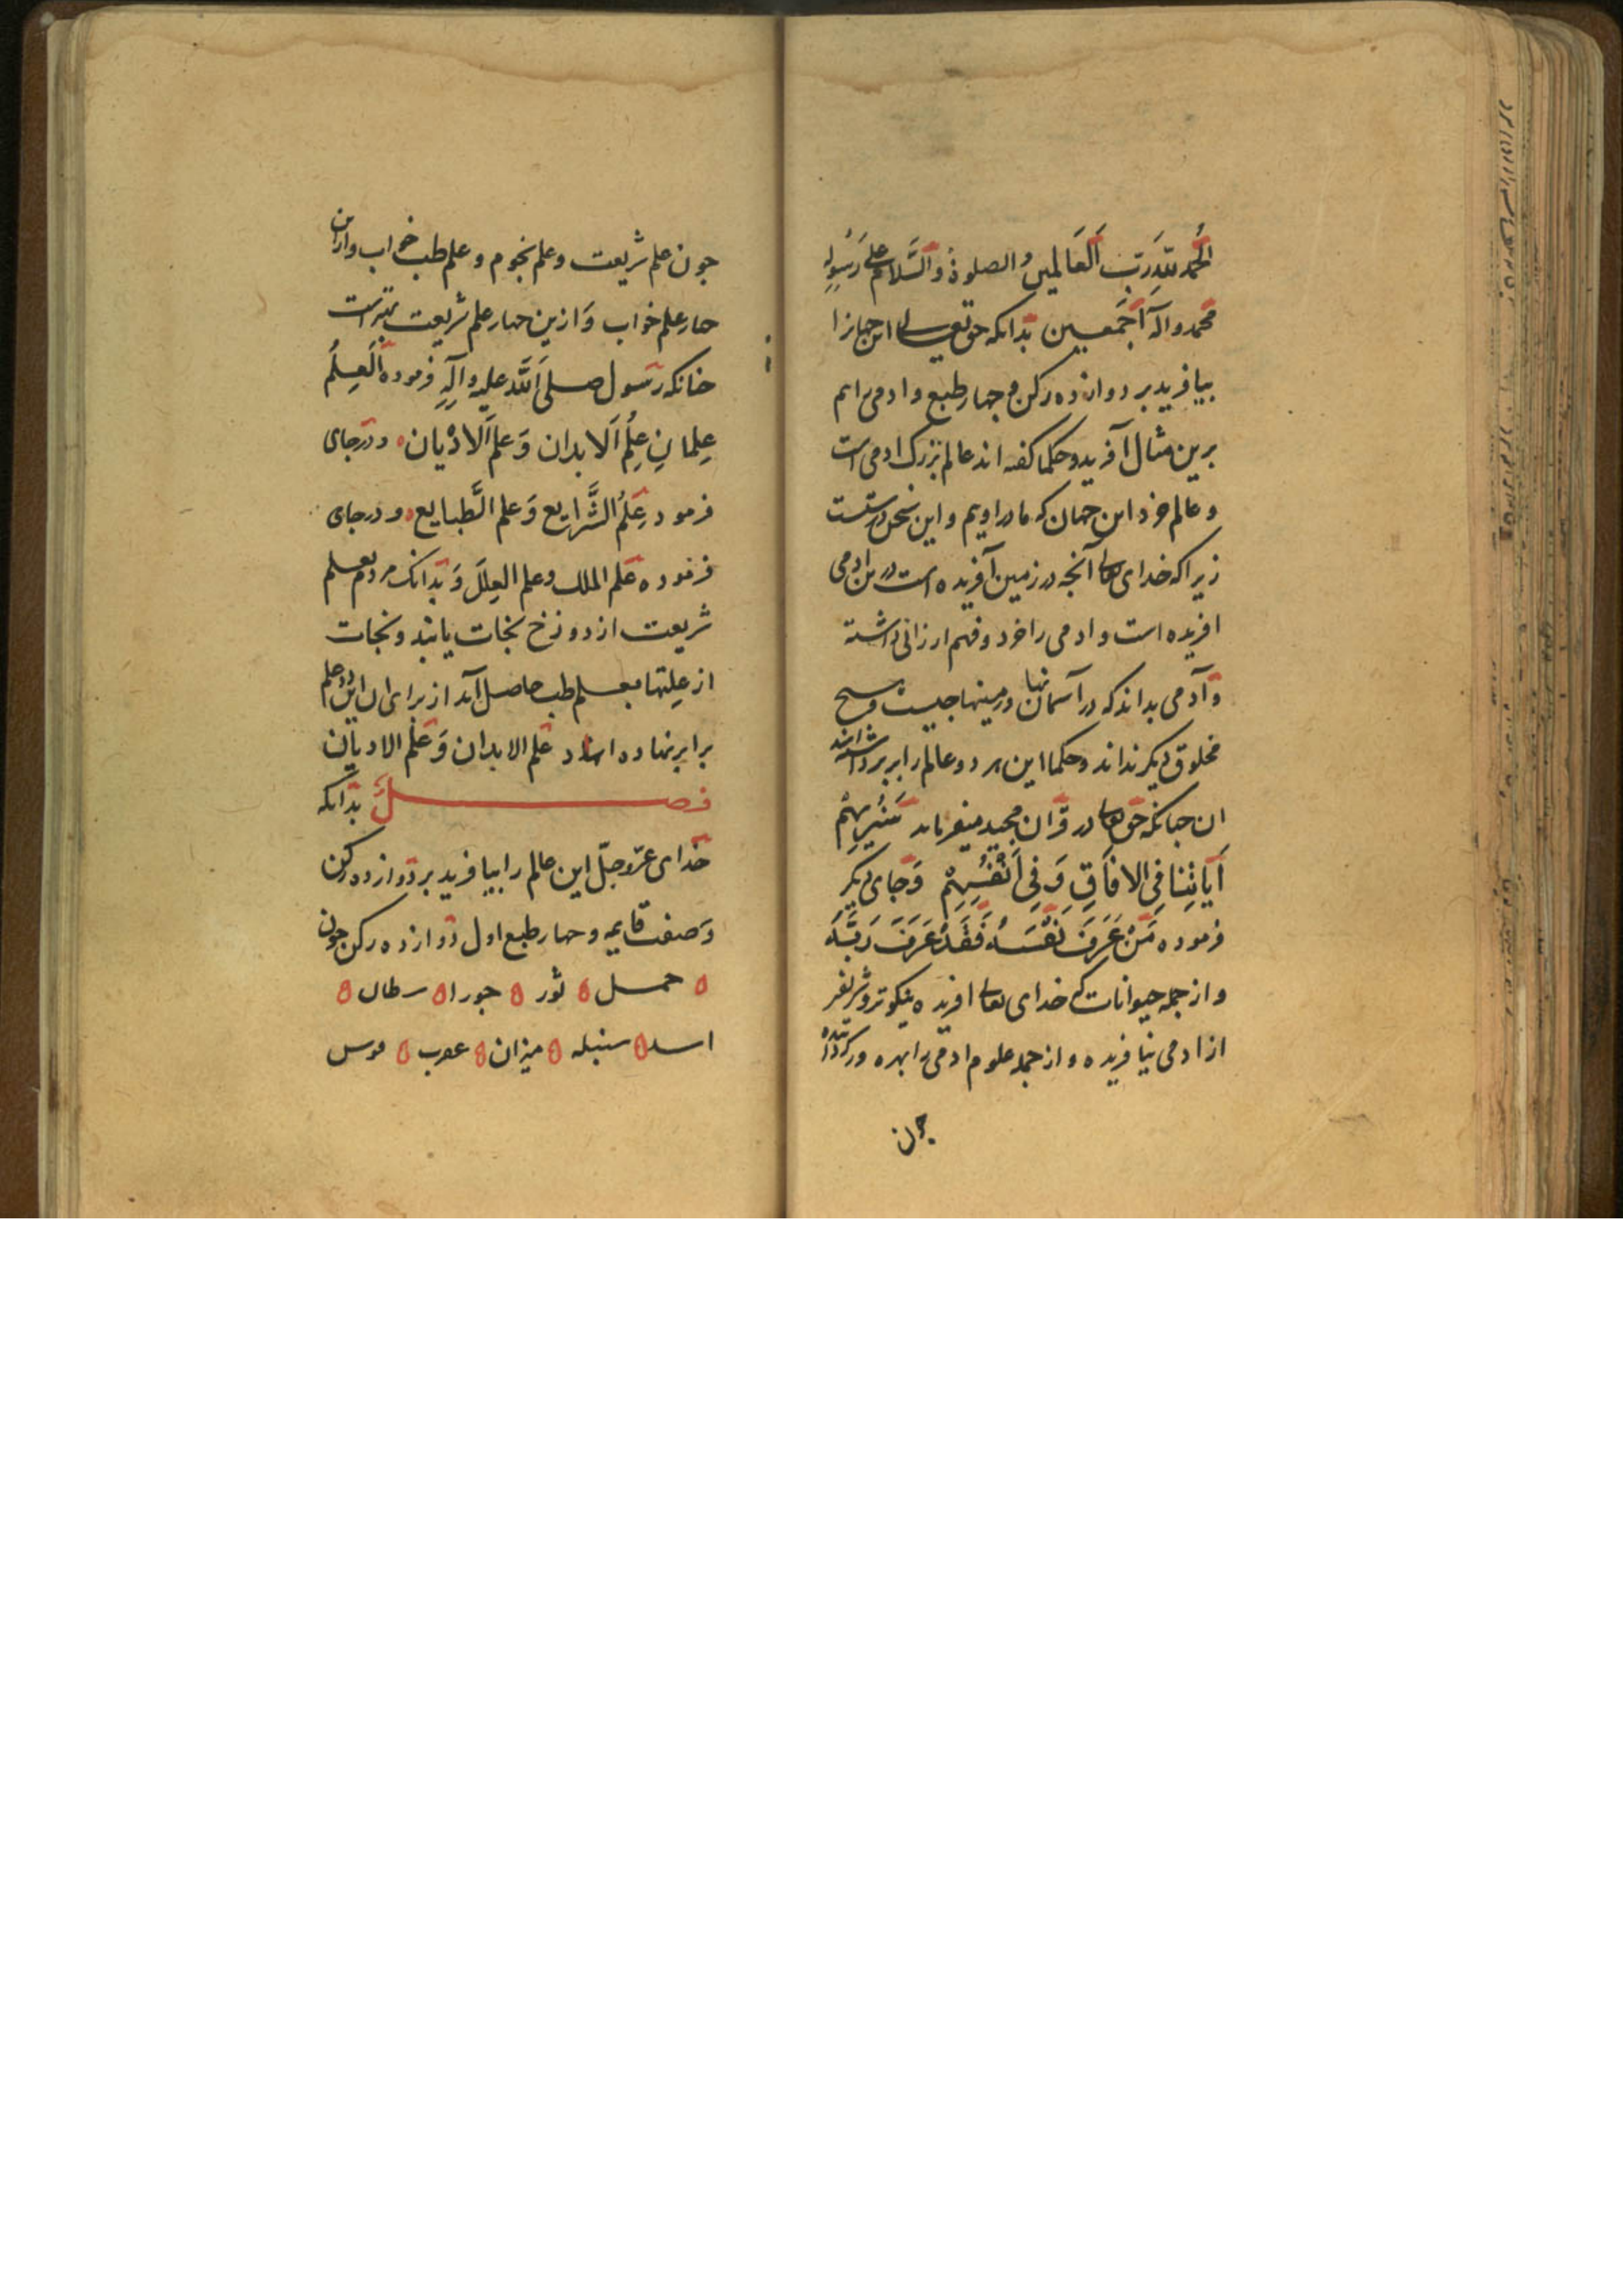 الحمد لله رب العالمين والصلوة والسلام علی رسوله
محمد وآله اجمعين بدانکه حق تعالی این جهانرا
بیافرید بر دوازده رکن و چهار طبع و ادمی را هم
برین مثال آفرید و حکما کفته اند عالم بزرک ادمی است
و عالم خرد این جهان که ما در اویم و این سخن درستست
زیراکه خدای تعالی آنجه در زمین آفریده است در بن ادمی
افریده است و ادمی را خرد و فهم ارزانی داشته
و آدمی بداند که در آسمانها و زمینها جیست و هیچ
مخلوق دیکر نداند و حکما این هر دو عالم را برابر داشته‌اند
ان جنانکه حق تعالی در قرآن مجید میفرماید سَنُریهِمْ
آیاتِنا فِی الافاقِ وَ فِی أَنْفُسِهِمْ وَ جای دیکر
فرموده مَنْ عَرَفَ نَفْسَهُ فَقَدْ عَرَفَ رَبَّهُ
و از جمله حیوانات که خدای تعالی افریده نیکوتر و شریفتر
از ادمی نیافریده و از جمله علوم ادمی را بهره ور کردانیده
جون
جون علم شریعت و علم نجوم و علم طب و خواب و از این
چهار علم خواب وَ ازین چهار علم شریعت بهتر است
چنانکه رسول صلی الله علیه وآله فرموده العِلمُ
عِلمانِ عِلمُ الابدان وَ علم الادْیان و در جای
فرمود عِلمُ الشَّرایع وَ علم الطَّبایع و در جای
فرموده علم الملل و علم العِلَل وَ بدانک مردم بعلم
شریعت از دوزخ نجات یابند و نجات
از عِلتها بعلم طب حاصل آید از برای ان این دو علم
برابر نهاده اند علم الابدان وَ علم الادیان
فصل بدانکه
خدای عزّ وجلّ این عالم را بیافرید بر دوازده رکن
وَ صفت قایمه و چهار طبع اول دوازده رکن جون
حمل ثور جوزا سرطان
اسد سنبله میزان عقرب قوس